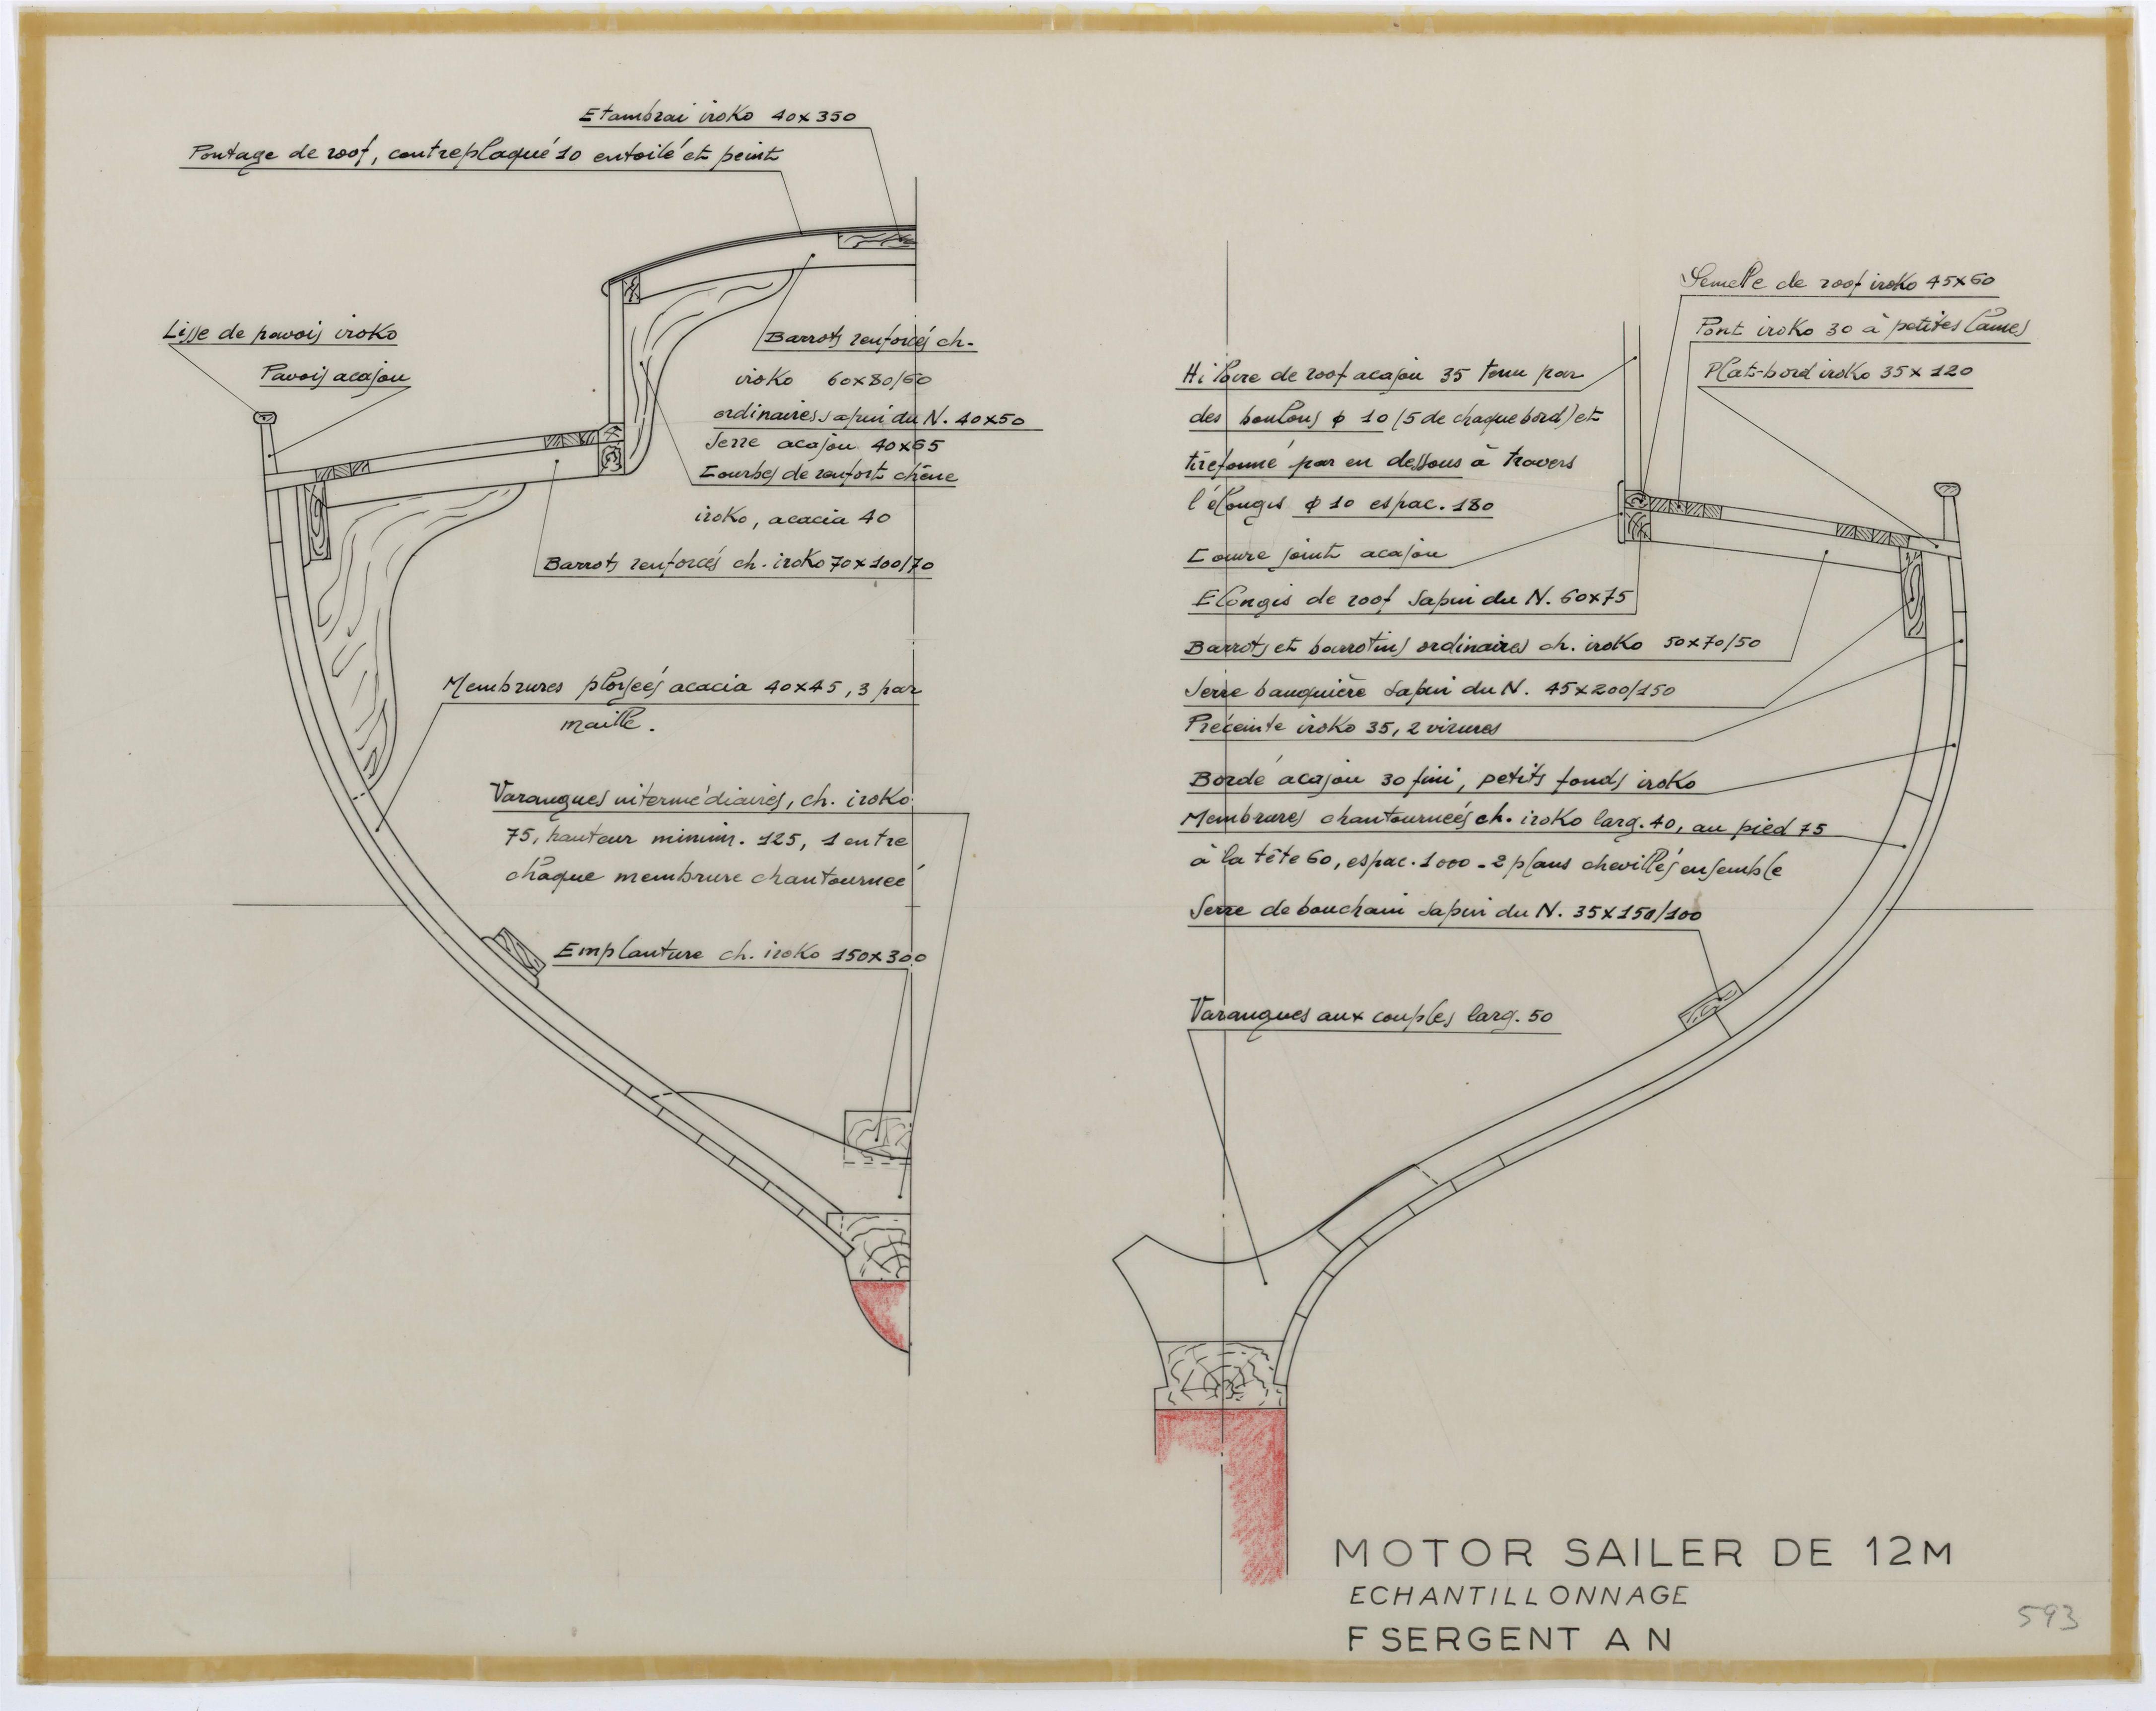 Etambrai iroko 40x350
Pontage de roof, contreplaqué 10 entoilé et peint
Lisse de pavois iroko
Pavois acajou
Barrots renforcés ch-
iroko 60x80/60
ordinaires sapin du N. 40x50
Serre acajou 40x65
Courbes de renfort chêne
iroko, acacia 40
Barrots renforcés ch. iroko 70x100/70
Membrures ployées acacia 40x45, 3 par
maille.
Varangues intermédiaires, ch. iroko
75, hauteur minim. 125, 1 entre
chaque membrure chantournée
Emplanture ch. iroko 150x300
Semelle de roof iroko 45x60
Pont iroko 30 à petites lames
Plat-bord iroko 35x120
Hiloire de roof acajou 35 tenu par
des boulons ϕ 10 (5 de chaque bord) et
tirefonné par en dessous à travers
l'élongis ϕ 10 espac. 180
Couvre joint acajou
Elongis de roof Sapin du N. 60x75
Barrots et barrotins ordinaires ch. iroko 50x70/50
Serre bauquière Sapin du N. 45x200/150
Préceinte iroko 35, 2 virures
Bordé acajou 30 fini, petits fonds iroko
Membrures chantournées ch. iroko larg. 40, au pied 75
à la tête 60, espac. 1000 - 2 plans chevillés ensemble
Serre de bouchain Sapin du N. 35x150/100
Varangues aux couples larg. 50
MOTOR SAILER DE 12M
ECHANTILLONNAGE
F SERGENT A N
593